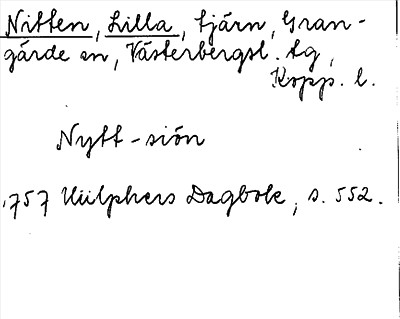 Nitten, Lilla, tjärn, Gran-
gärde sn, Västerbergsl. tg,
Kopp. l.
Nytt-siön
1757 Hülphers Dagbok, s. 552.